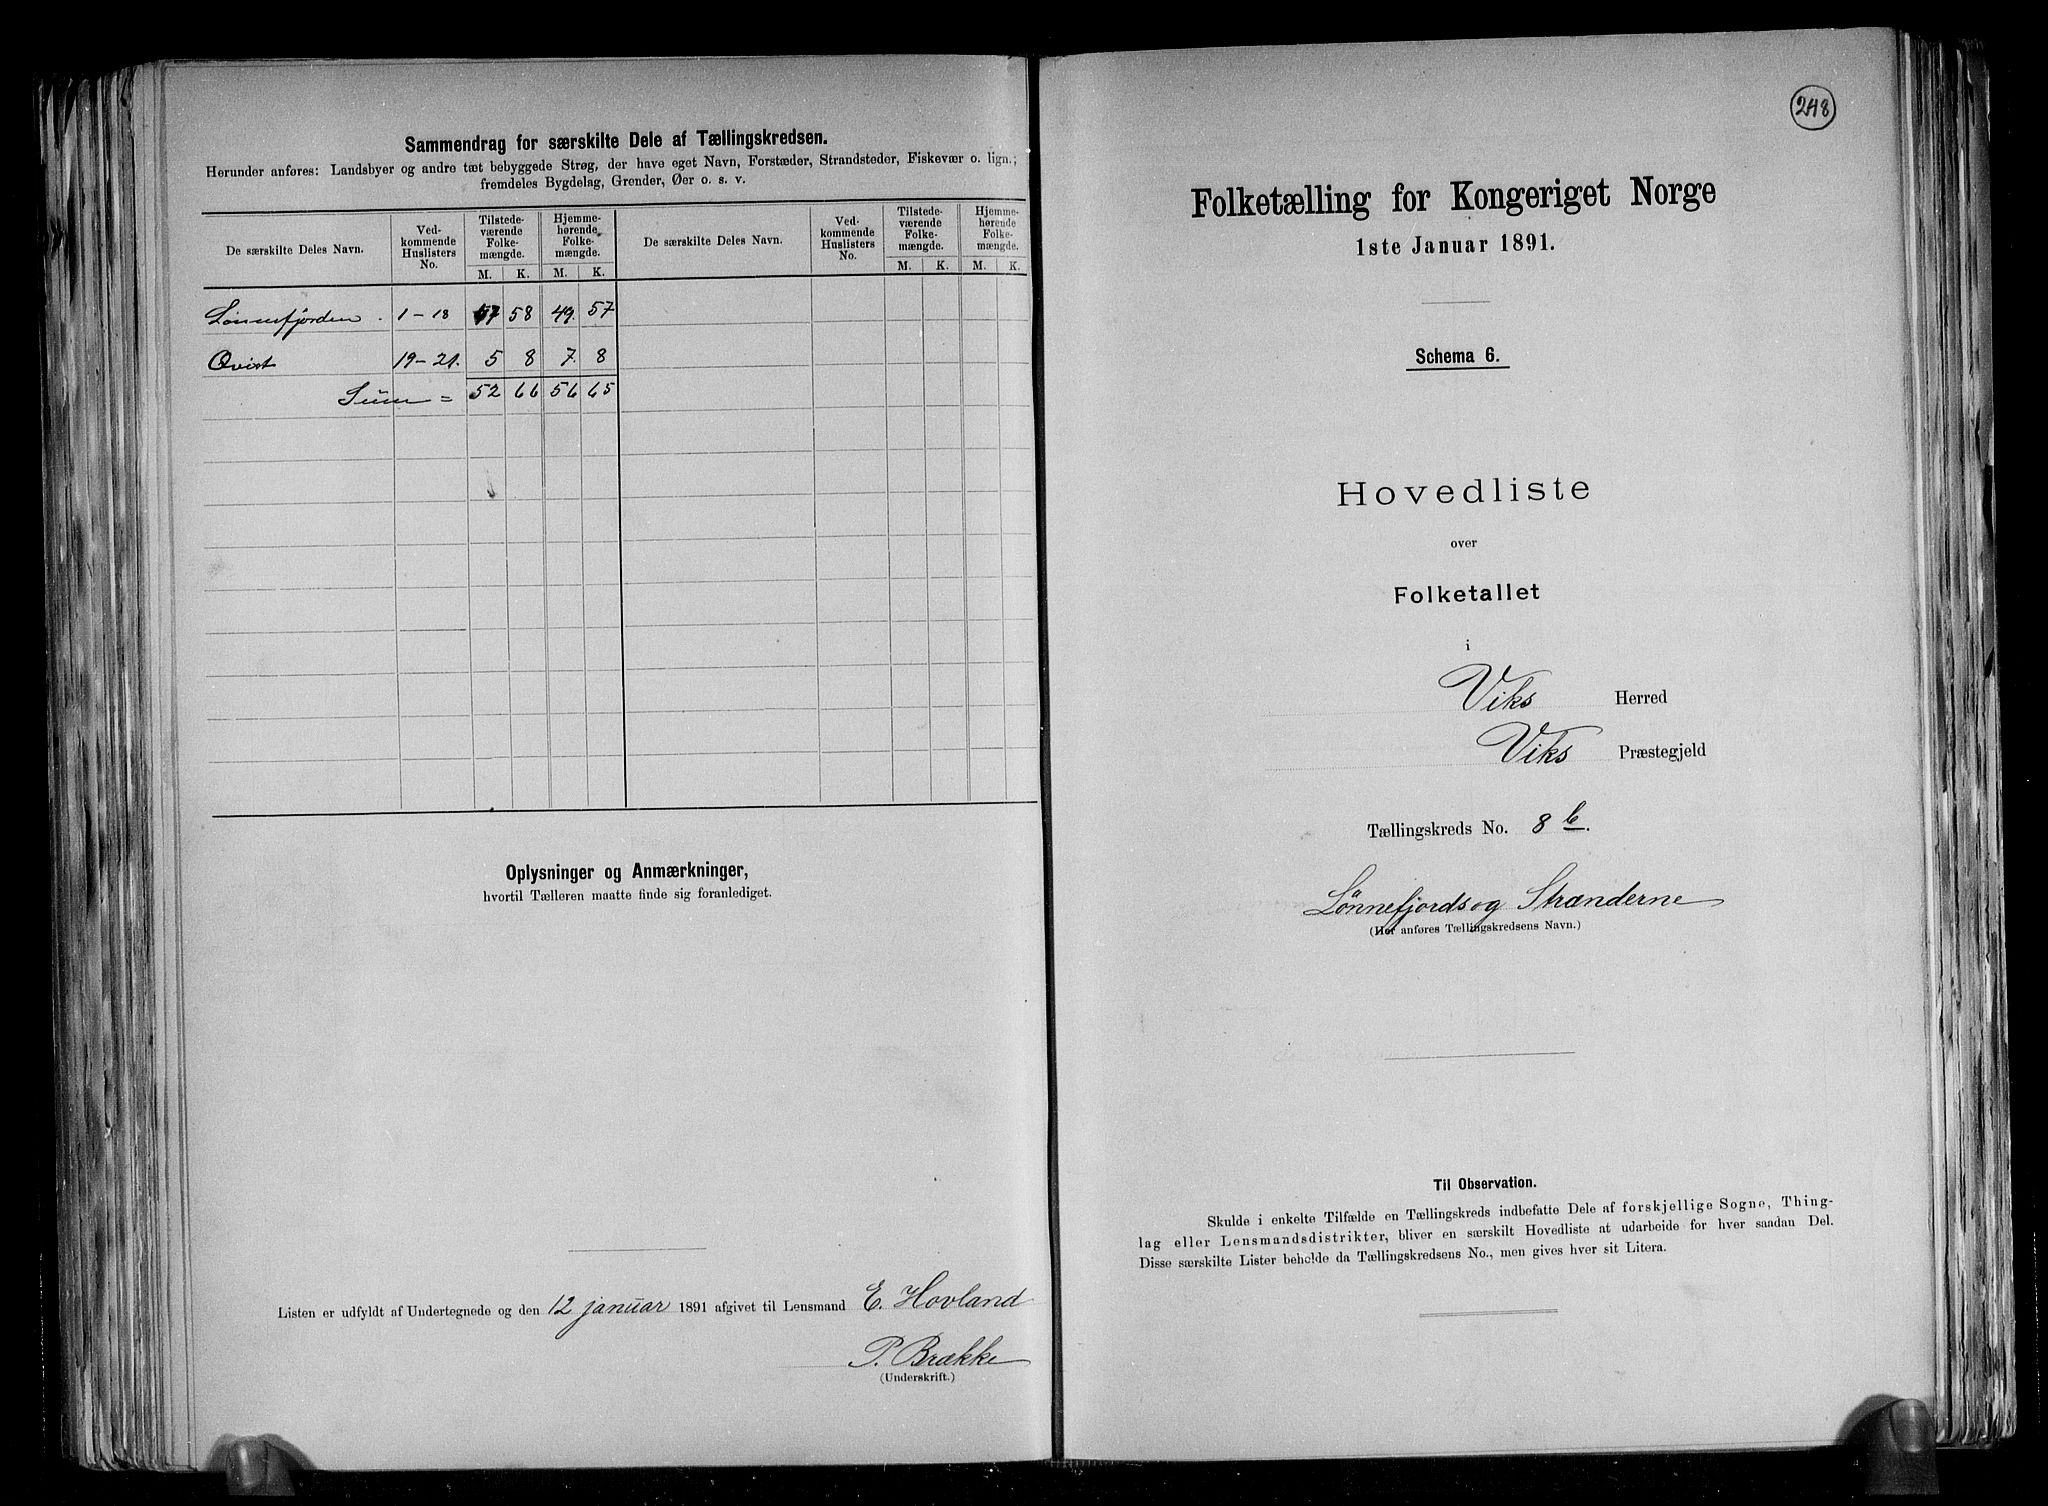 Sammendrag for særskilte Dele af Tællingskredsen.
Herunder anføres: Landsbyer og andre tæt bebyggede Strøg, der have eget Navn, Forstæder, Strandsteder, Fiskevær o. lign.;
fremdeles Bygdelag, Grender, Øer o. s. v.
De særskilte Deles Navn. Ved-kommende Huslisters No. Tilstede-værende Folke-mængde. Hjemme-hørende Folke-mængde. De særskilte Deles Navn. Ved-kommende Huslisters No. Tilstede-værende Folke-mængde. Hjemme-hørende Folke-mængde.
M. K. M. K. M. K. M. K.
Lønnefjorden . 1-18 47 58 49. 57
Qvist 19-21. 5 8 7. 8
Sum = 52 66 56 65
Oplysninger og Anmærkninger,
hvortil Tælleren maatte finde sig foranlediget.
Listen er udfyldt af Undertegnede og den 12 januar 1891 afgivet til Lensmand E. Hovland
P. Brække
(Underskrift.)
248
Folketælling for Kongeriget Norge
1ste Januar 1891.
Schema 6.
Hovedliste
over
Folketallet
i
Viks Herred
Viks Præstegjeld
Tællingskreds No. 8 b.
Lønnefjords og Stranderne
(Her anføres Tællingskredsens Navn.)
Til Observation.
Skulde i enkelte Tilfælde en Tællingskreds indbefatte Dele af forskjellige Sogne, Thing-
lag eller Lensmandsdistrikter, bliver en særskilt Hovedliste at udarbeide for hver saadan Del.
Disse særskilte Lister beholde da Tællingskredsens No., men gives hver sit Litera.